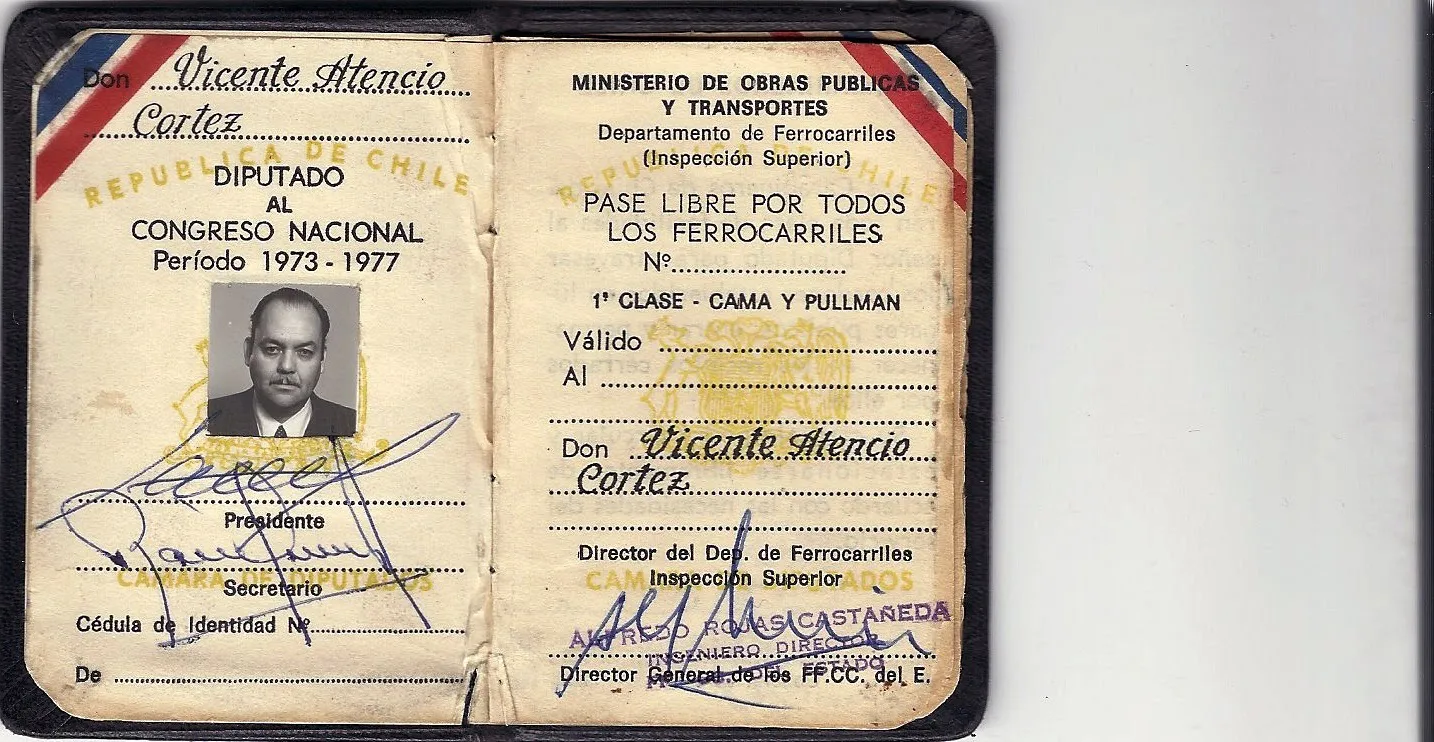 Don Vicente Atencio
Cortez
REPUBLICA DE CHILE
DIPUTADO
AL
CONGRESO NACIONAL
Período 1973 - 1977
Presidente
CAMARA DE DIPUTADOS
Secretario
Cédula de Identidad Nº
De
MINISTERIO DE OBRAS PUBLICAS
Y TRANSPORTES
Departamento de Ferrocarriles
(Inspección Superior)
REPUBLICA DE CHILE
PASE LIBRE POR TODOS
LOS FERROCARRILES
Nº
1ª CLASE - CAMA Y PULLMAN
Válido
Al
Don Vicente Atencio
Cortez
Director del Dep. de Ferrocarriles
Inspección Superior
CAMARA DE DIPUTADOS
ALFREDO ROJAS CASTAÑEDA
INGENIERO DIRECTOR
DEL ESTADO
Director General de los FF.CC. del E.